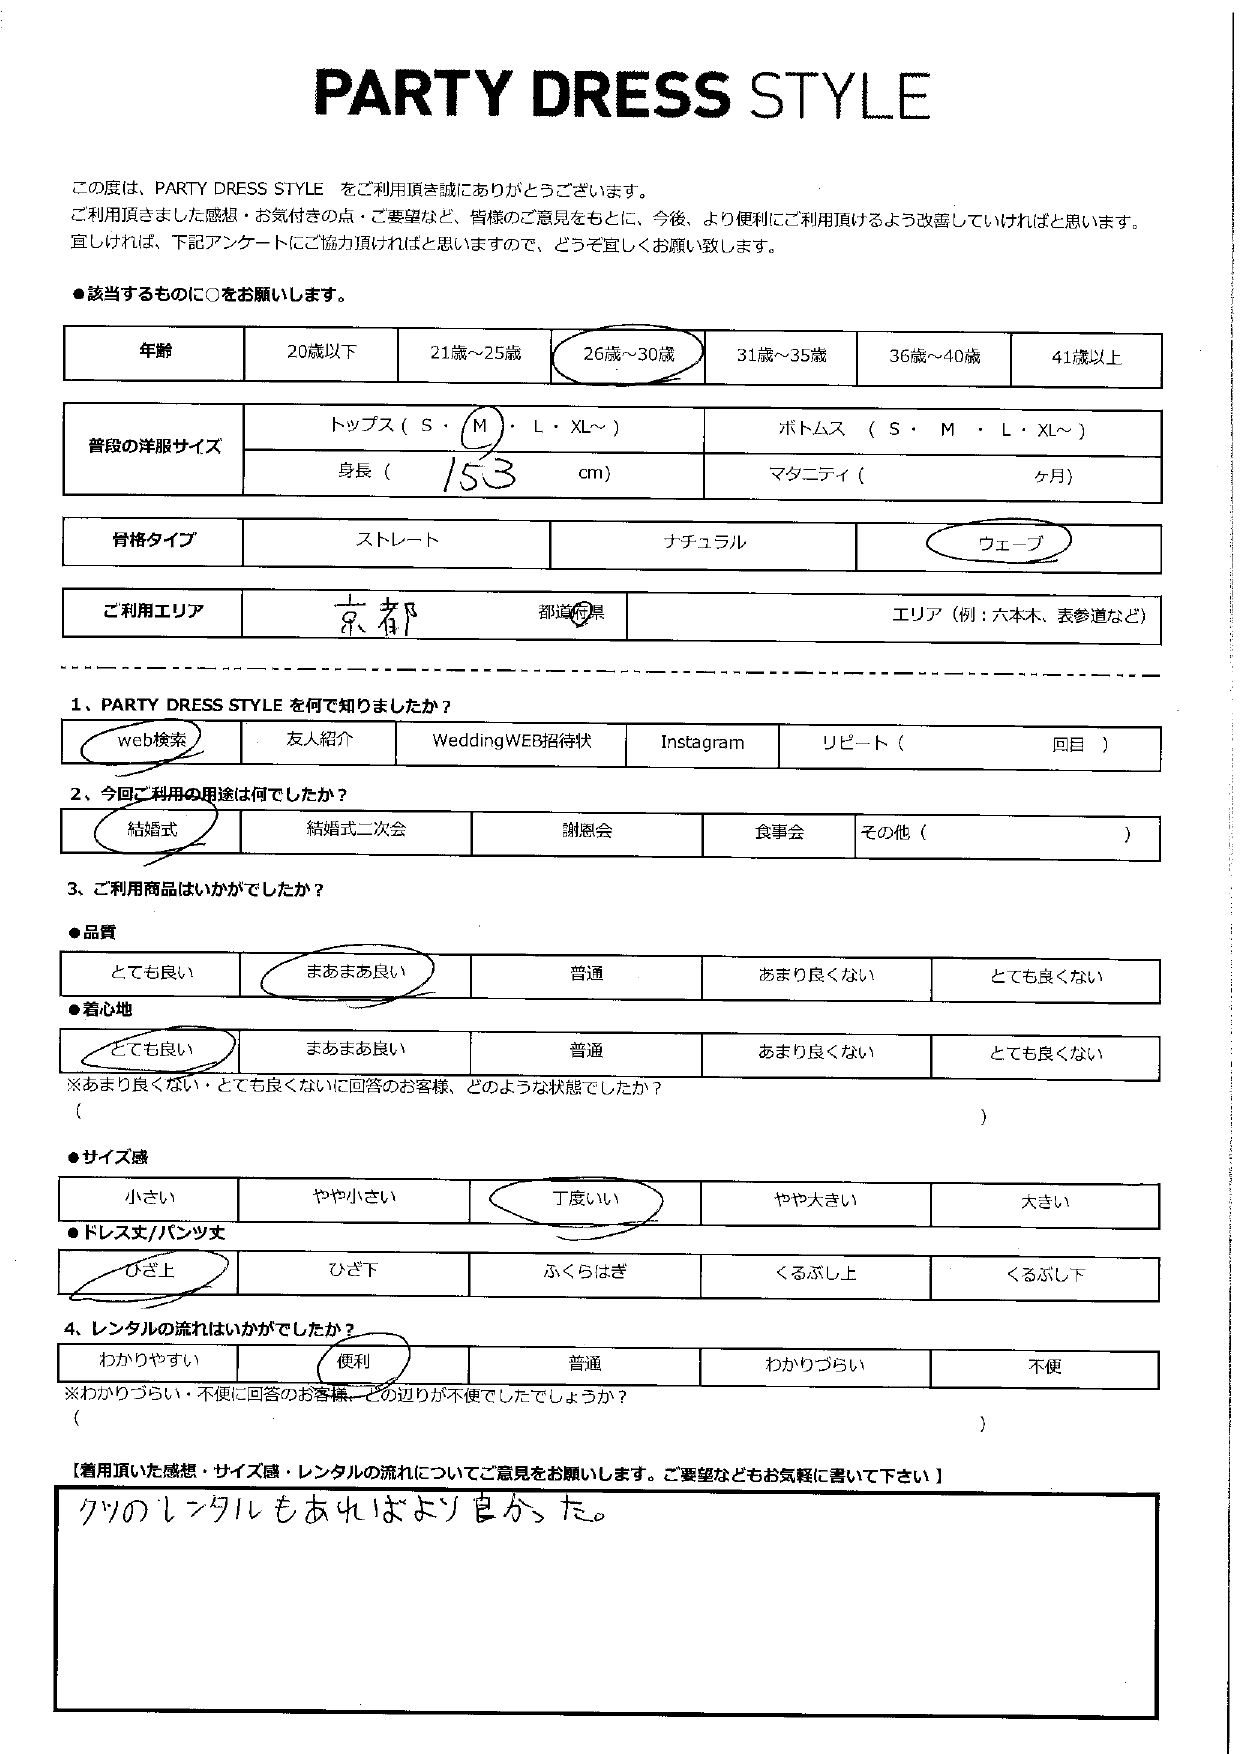 PARTY DRESS STYLE
この度は、PARTY DRESS STYLE をご利用頂き誠にありがとうございます。
ご利用頂きました感想・お気付きの点・ご要望など、皆様のご意見をもとに、今後、より便利にご利用頂けるよう改善していければと思います。
宜しければ、下記アンケートにご協力頂ければと思いますので、どうぞ宜しくお願い致します。
●該当するものに○をお願いします。
年齢 20歳以下 21歳～25歳 26歳～30歳 31歳～35歳 36歳～40歳 41歳以上
普段の洋服サイズ
トップス ( S ・ M ・ L ・ XL～ ) ボトムス ( S ・ M ・ L ・ XL～ )
身長 ( 153 cm) マタニティ ( ヶ月)
骨格タイプ ストレート ナチュラル ウェーブ
ご利用エリア 京都 都道府県 エリア（例：六本木、表参道など）
1、PARTY DRESS STYLE を何で知りましたか？
web検索 友人紹介 WeddingWEB招待状 Instagram リピート（ 回目 ）
2、今回ご利用の用途は何でしたか？
結婚式 結婚式二次会 謝恩会 食事会 その他（ ）
3、ご利用商品はいかがでしたか？
●品質
とても良い まあまあ良い 普通 あまり良くない とても良くない
●着心地
とても良い まあまあ良い 普通 あまり良くない とても良くない
※あまり良くない・とても良くないに回答のお客様、どのような状態でしたか？
（ ）
●サイズ感
小さい やや小さい 丁度いい やや大きい 大きい
●ドレス丈/パンツ丈
ひざ上 ひざ下 ふくらはぎ くるぶし上 くるぶし下
4、レンタルの流れはいかがでしたか？
わかりやすい 便利 普通 わかりづらい 不便
※わかりづらい・不便に回答のお客様、どの辺りが不便でしたでしょうか？
（ ）
【着用頂いた感想・サイズ感・レンタルの流れについてご意見をお願いします。ご要望などもお気軽に書いて下さい 】
クツのレンタルもあればより良かった。